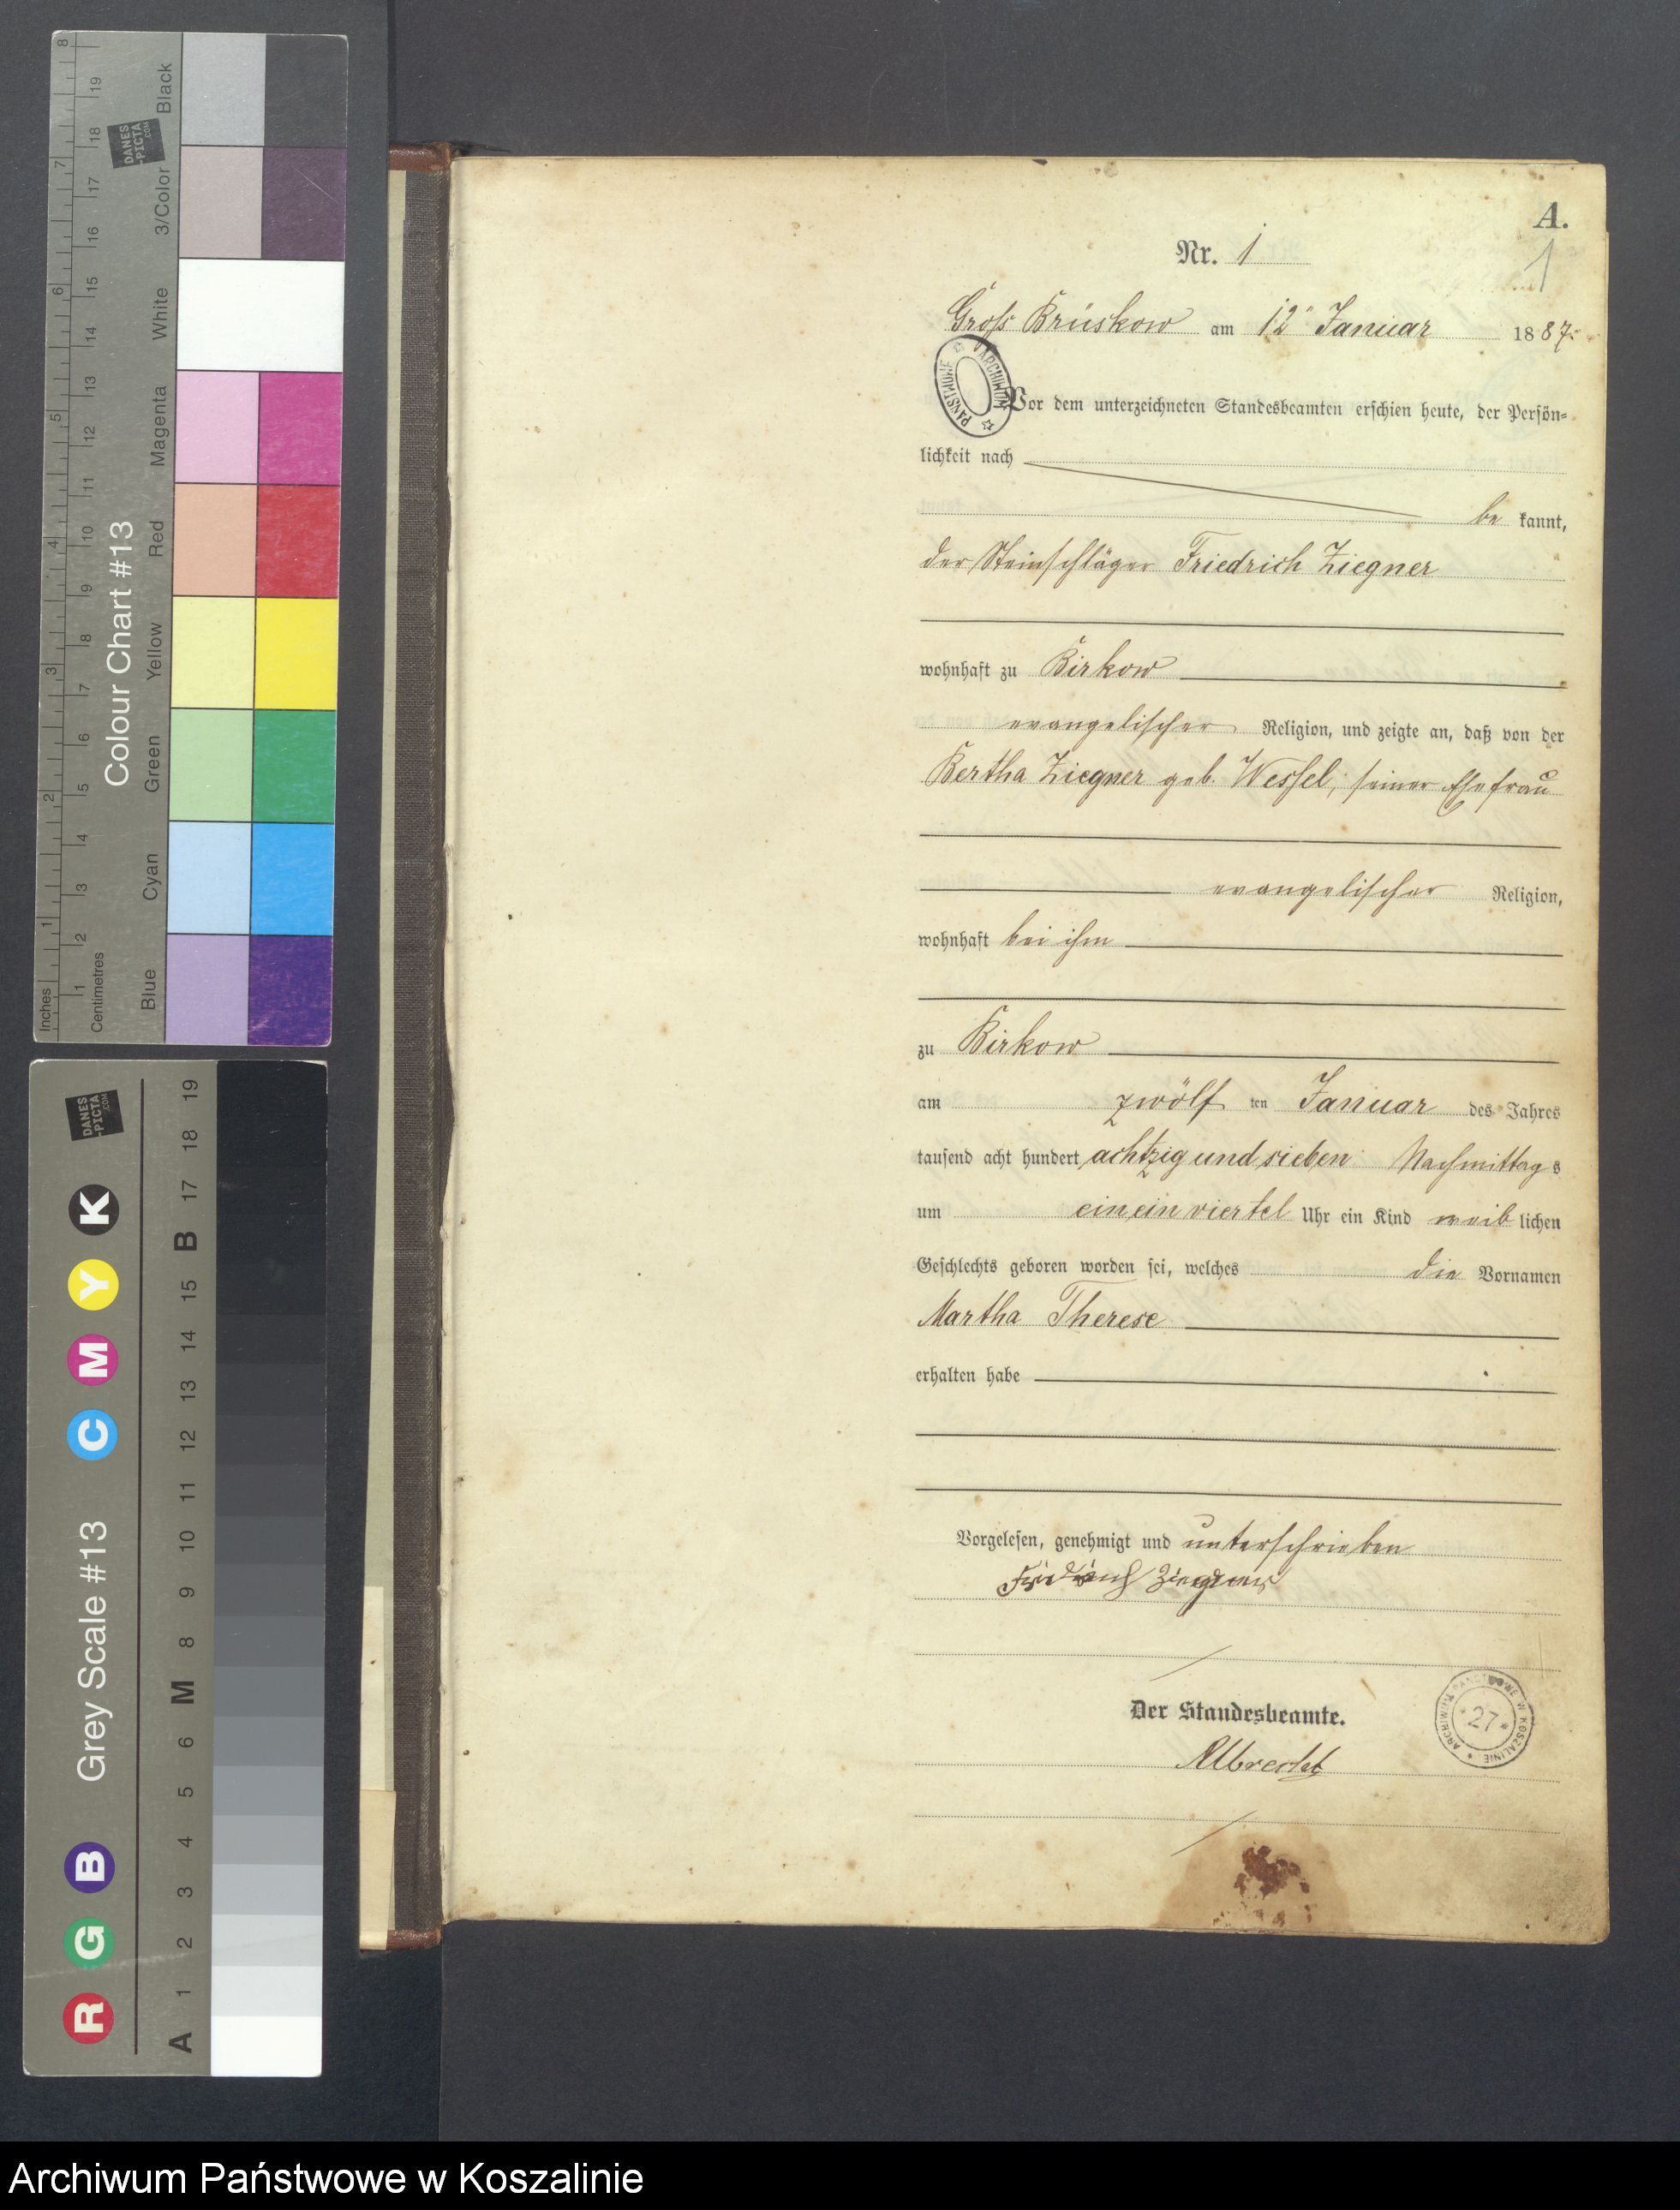 A.
Nr. 1
1
Gross Brüskow am 12 Januar 1887.
ARCHIWUM PAŃSTWOWE
Vor dem unterzeichneten Standesbeamten erschien heute, der Persön-
lichkeit nach
be kannt,
der Steinschläger Friedrich Ziegner
wohnhaft zu Birkow
evangelischer Religion, und zeigte an, daß von der
Bertha Ziegner geb. Wessel, seiner Ehefrau
evangelischer Religion,
wohnhaft bei ihm
zu Birkow
am zwölf ten Januar des Jahres
tausend acht hundert achtzig und sieben Nachmittag s
um ein ein viertel Uhr ein Kind weib lichen
Geschlechts geboren worden sei, welches die Vornamen
Martha Therese
erhalten habe
Vorgelesen, genehmigt und unterschrieben
Friedrich Ziegner
Der Standesbeamte.
ARCHIWUM PAŃSTWOWE W KOSZALINIE
* 27 *
Albrecht
Colour Chart #13
Inches 1 2 3 4 5 6 7 8
Centimetres 1 2 3 4 5 6 7 8 9 10 11 12 13 14 15 16 17 18 19
Blue Cyan Green Yellow Red Magenta White 3/Color Black
DANES
-PICTA
.COM
Grey Scale #13
R G B C M Y K
A 1 2 3 4 5 6 M 8 9 10 11 12 13 14 15 B 17 18 19
DANES
-PICTA
.COM
Archiwum Państwowe w Koszalinie